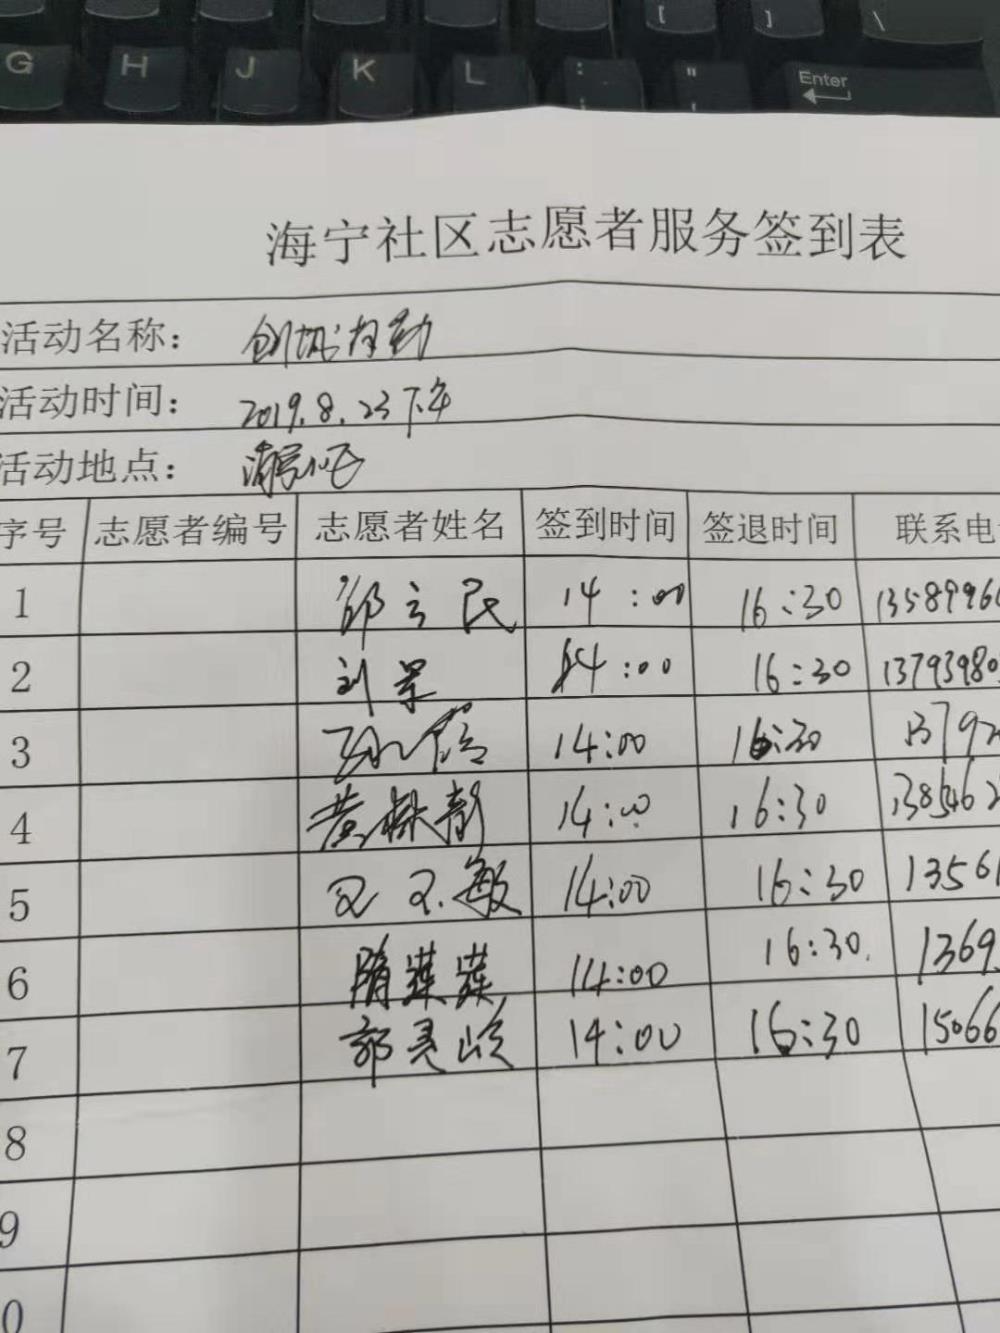 G H J K L : ; " ' [ ] \ Enter
海宁社区志愿者服务签到表
活动名称： 创城执勤
活动时间： 2019.8.23下午
活动地点：
序号 志愿者编号 志愿者姓名 签到时间 签退时间 联系电
1 民 14:00 16:30 1358996
2 刘 14:00 16:30 13793980
3 14:00 16:30 1379
4 黄 静 14:00 16:30 138546
5 敏 14:00 16:30 1356
6 隋 14:00 16:30. 1369
7 郭 14:00 16:30 15066
8
9
0